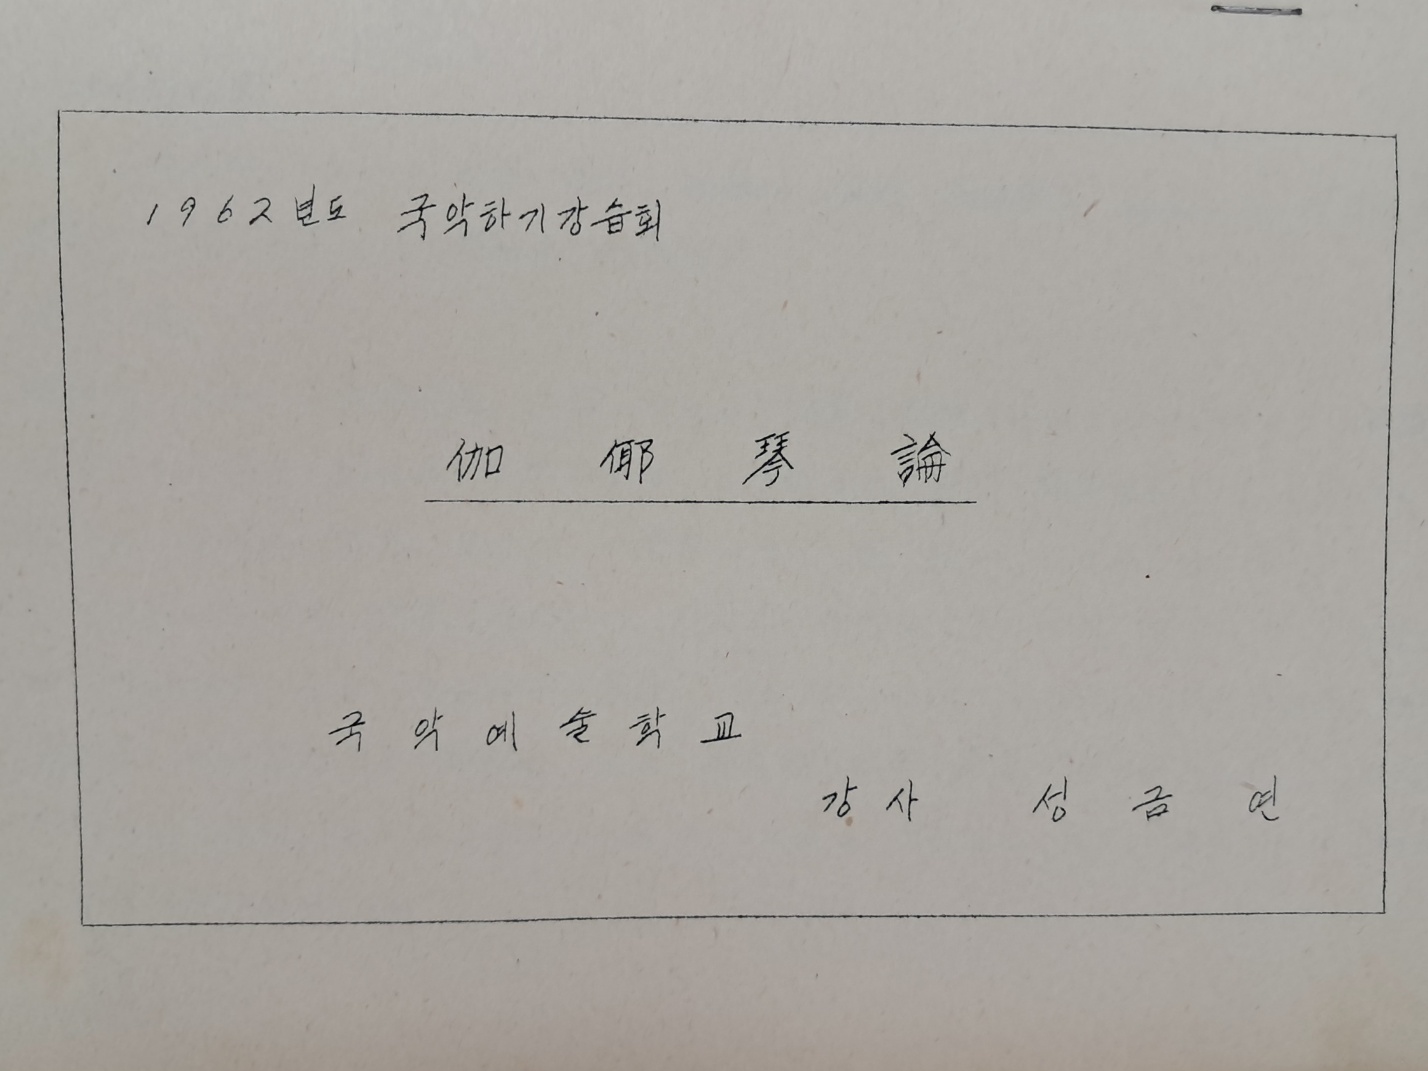 1962년도 국악하기강습회
伽倻琴論
국악예술학교
강사 성금연